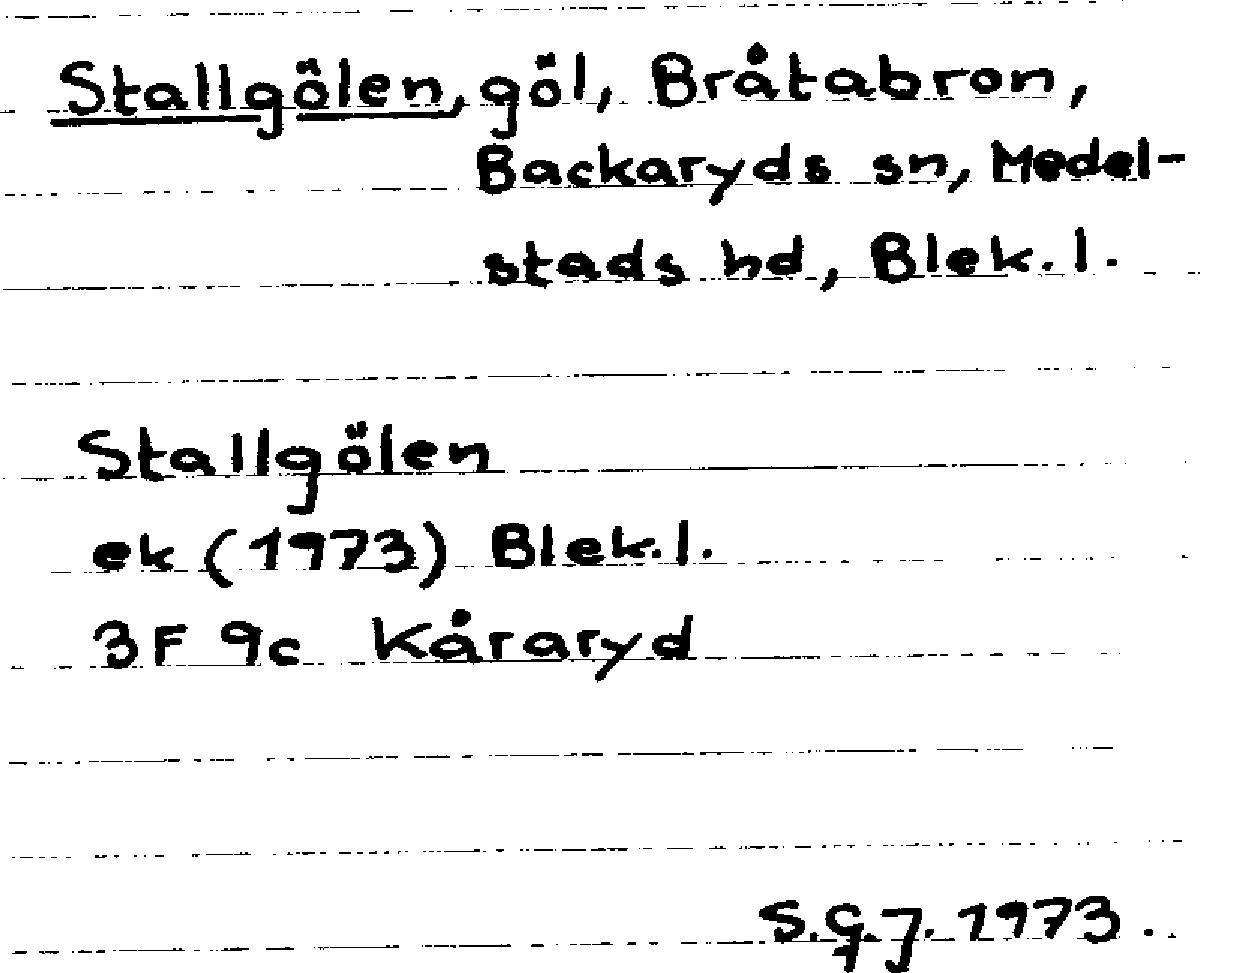 Stallgölen, göl, Bråtabron,
Backaryds sn, Medel-
stads hd, Blek. l.
Stallgölen
ek (1973) Blek. l.
3F 9c Kåraryd
S.G.J. 1973.